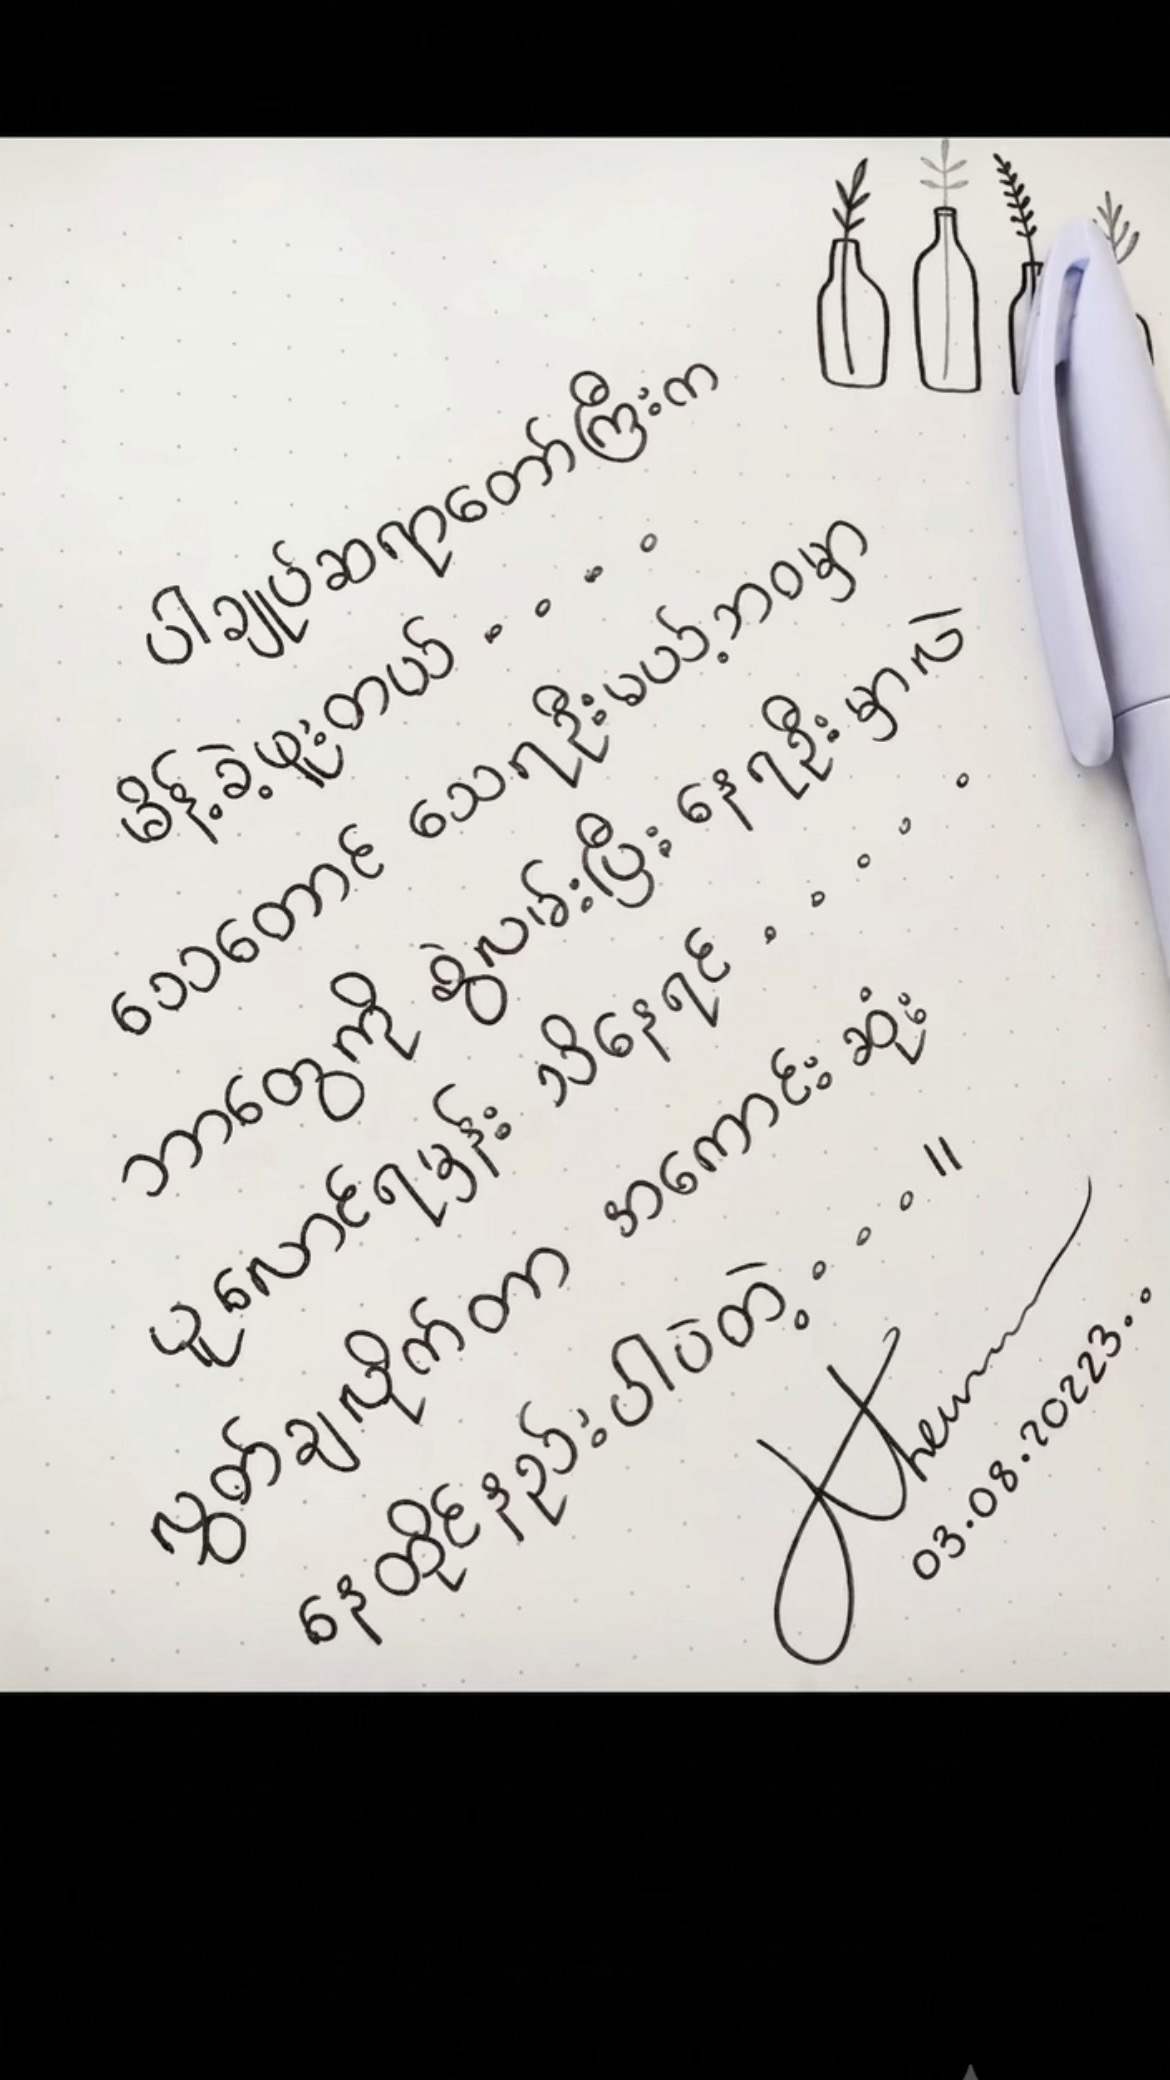 ပါချုပ်ဆရာတော်ကြီးက
မိန့်ခဲ့ဖူးတယ် . . . . .
သေသတောင် သေရဦးမယ့်ဘဝမှာ
ဘာတွေကို စွဲလမ်းပြီး နေရဦးမှာလဲ
ယူလောင်ရမှန်း သိနေရင် . . . . .
လွှတ်ချလိုက်တာ အကောင်းဆုံး
နေထိုင်နည်းပါပဲတဲ့ . . . ။
03.08.20223..